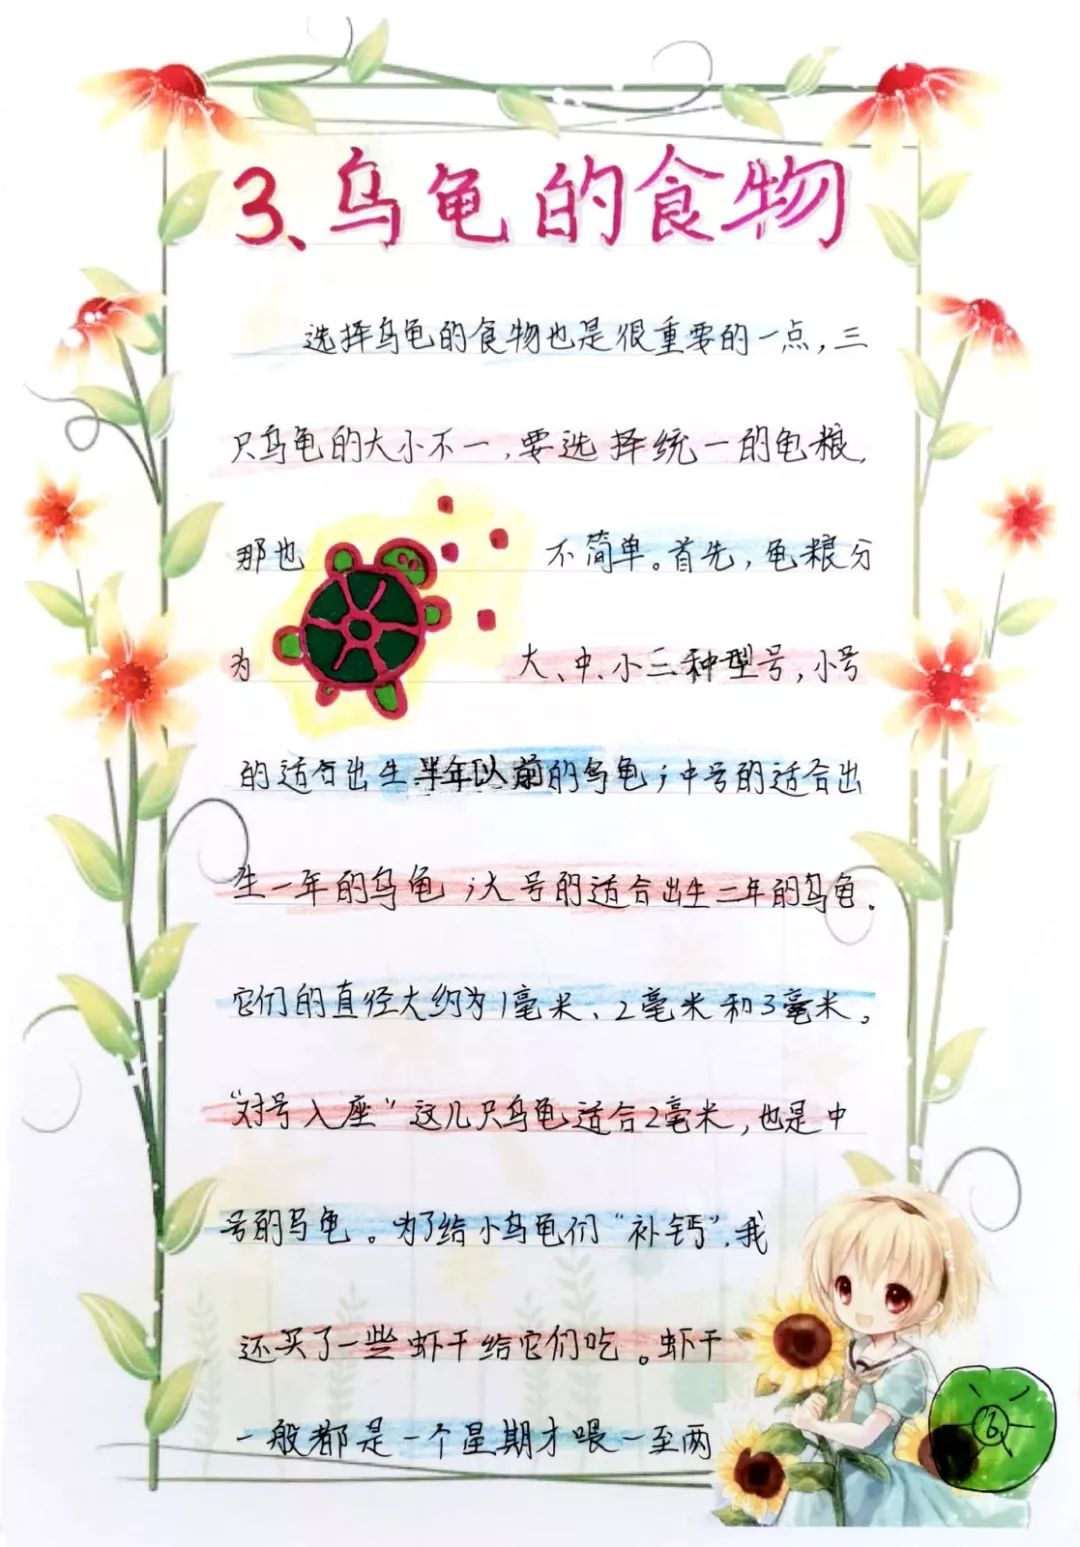 3、乌龟的食物
选择乌龟的食物也是很重要的一点，三
只乌龟的大小不一，要选择统一的龟粮，
那也不简单。首先，龟粮分
为大、中、小三种型号，小号
的适合出生半年以前的乌龟；中号的适合出
生一年的乌龟；大号的适合出生二年的乌龟。
它们的直径大约为1毫米、2毫米和3毫米。
“对号入座”这几只乌龟适合2毫米，也是中
号的乌龟。为了给小乌龟们“补钙”，我
还买了一些虾干给它们吃。虾干
一般都是一个星期才喂一至两